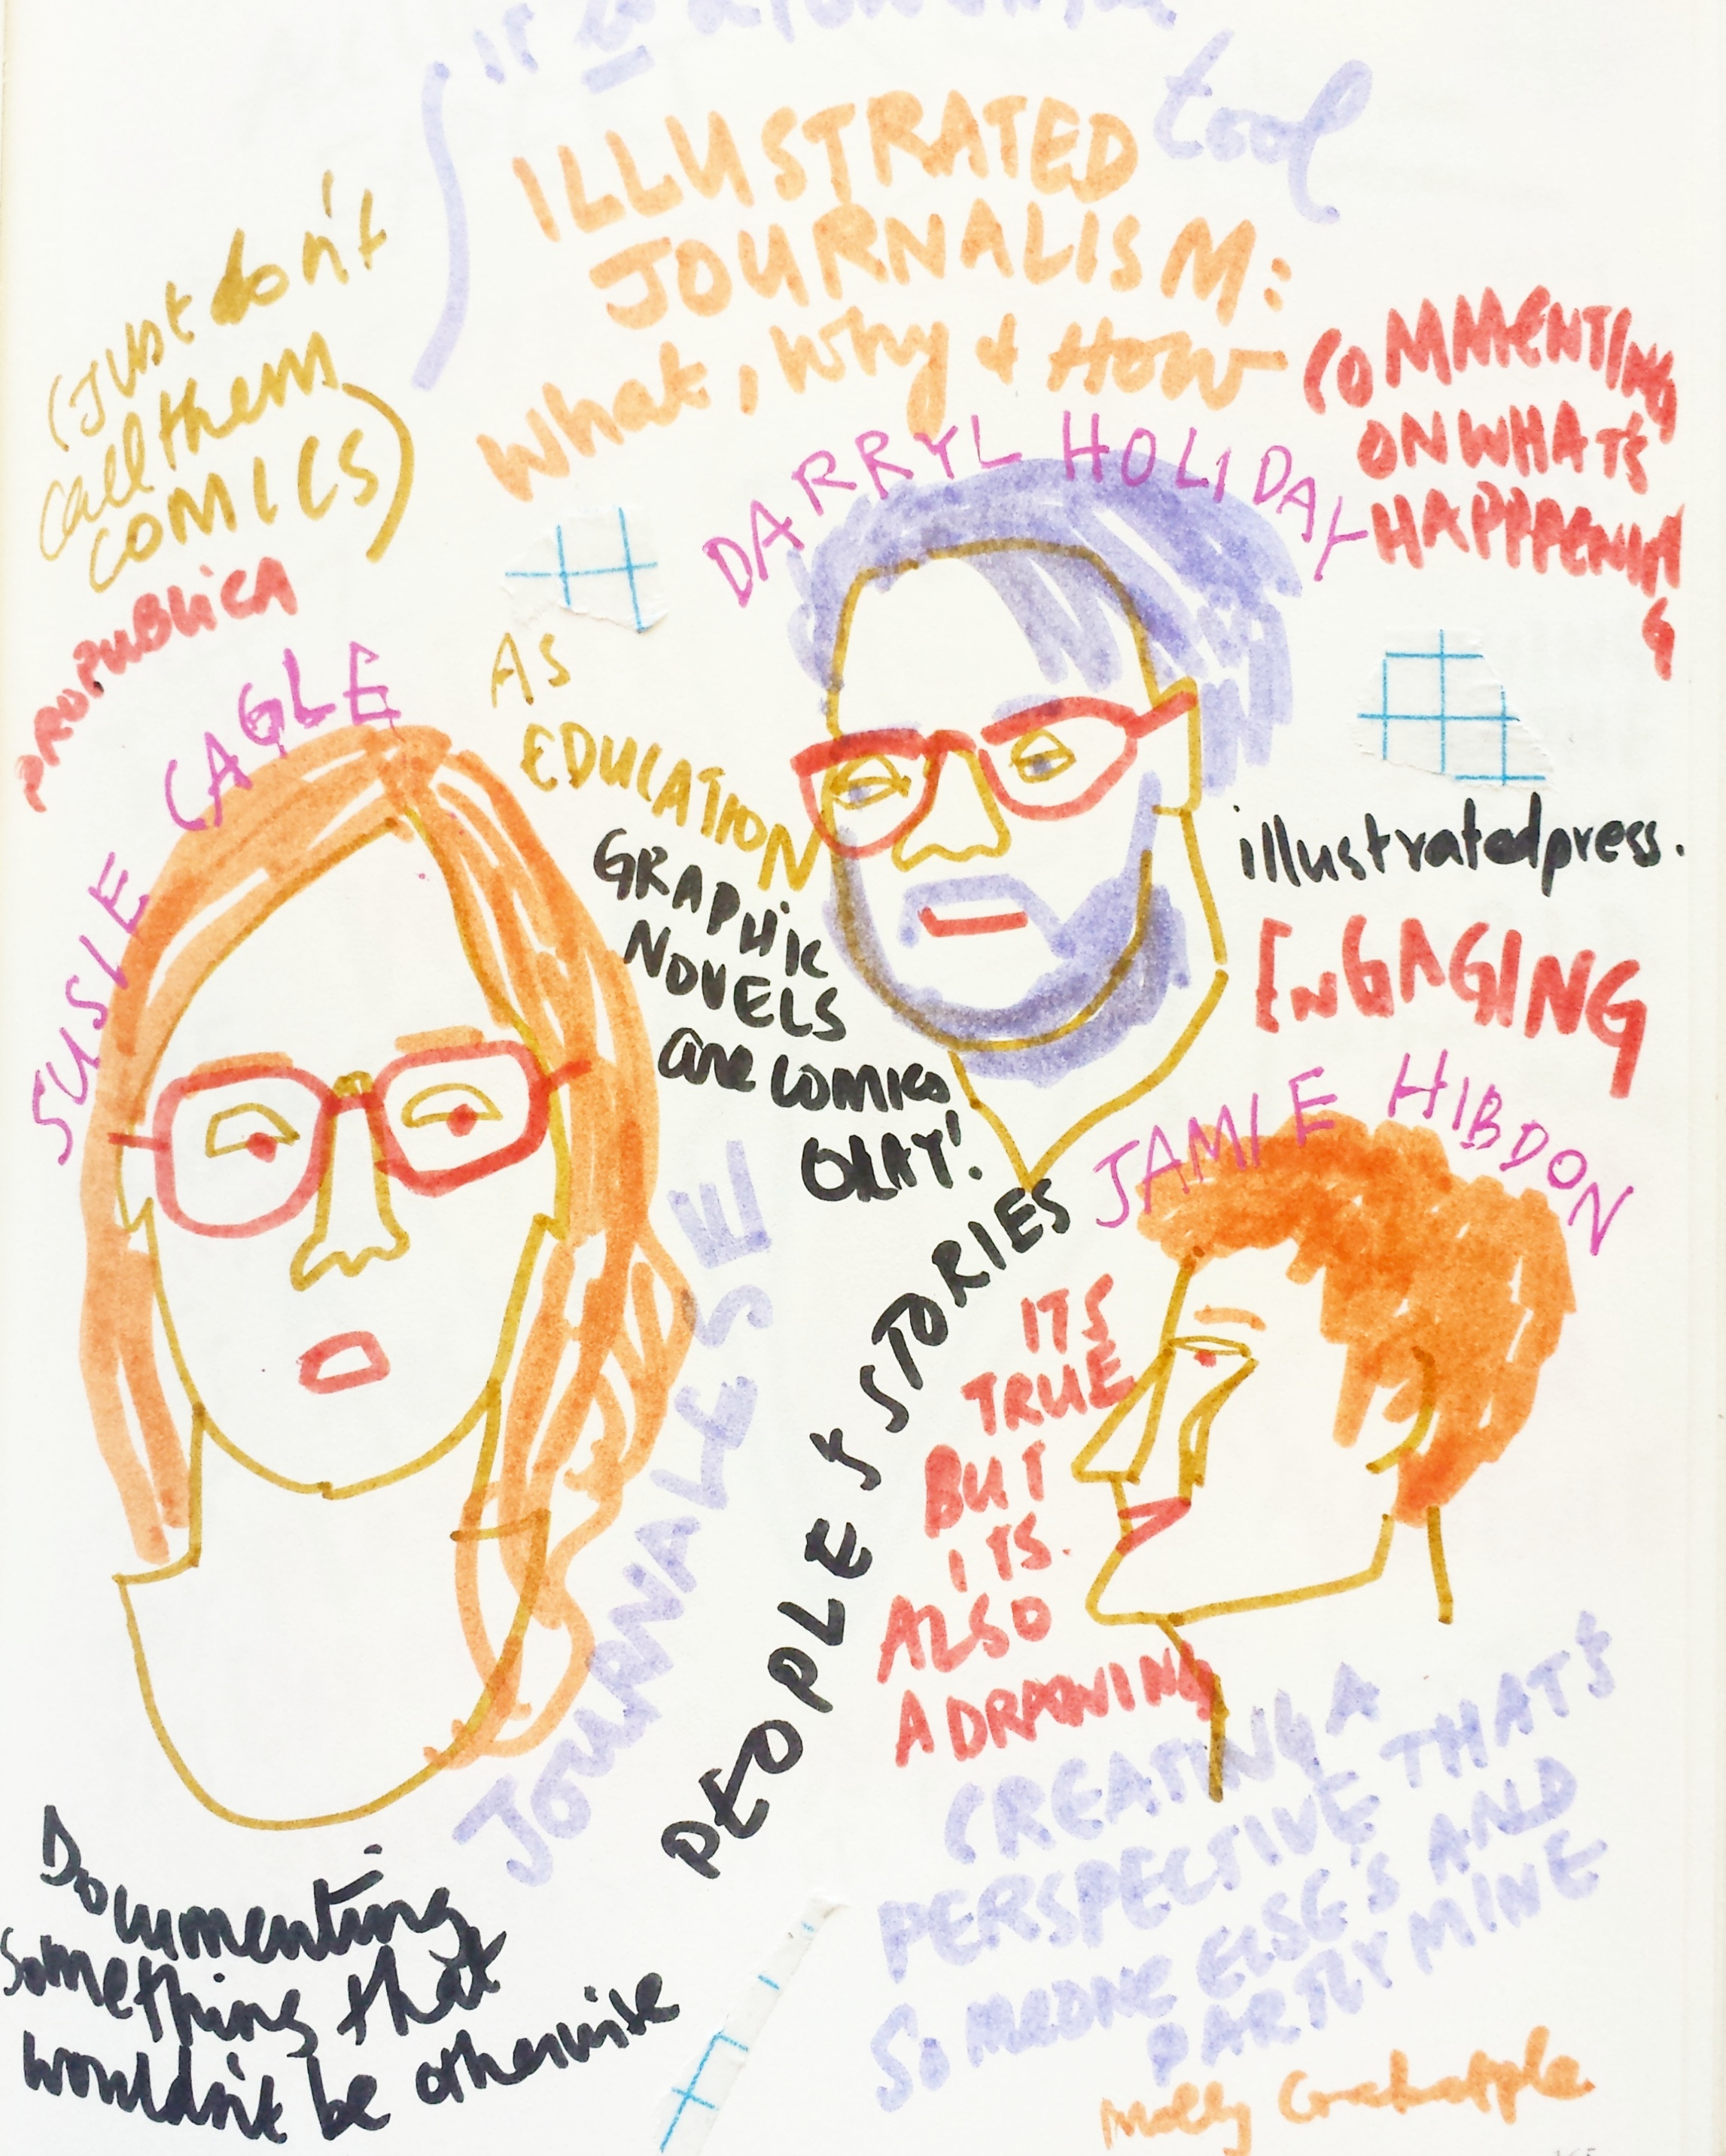 It is a
tool
ILLUSTRATED
JOURNALISM:
What, Why & How
(JUst don't
call them
COMICS)
COMMENTING
ON WHATS
HAPPPENIN
G
DARRYL HOLIDAY
PROPUBLICA
SUSIE CAGLE
AS
EDUCATION
GRAPHIC
NOVELS
are COMICS
OKAY!
illustratedpress.
ENGAGING
JAMIE HIBDON
JOURNALESE
PEOPLE'S STORIES
ITS
TRUE
BUT
ITS.
ALSO
A DRAWING
CREATING A
PERSPECTIVE THAT'S
SOMEONE ELSE'S AND
PARTLY MINE
Documenting
Something that
wouldn't be otherwise
Molly Crabapple